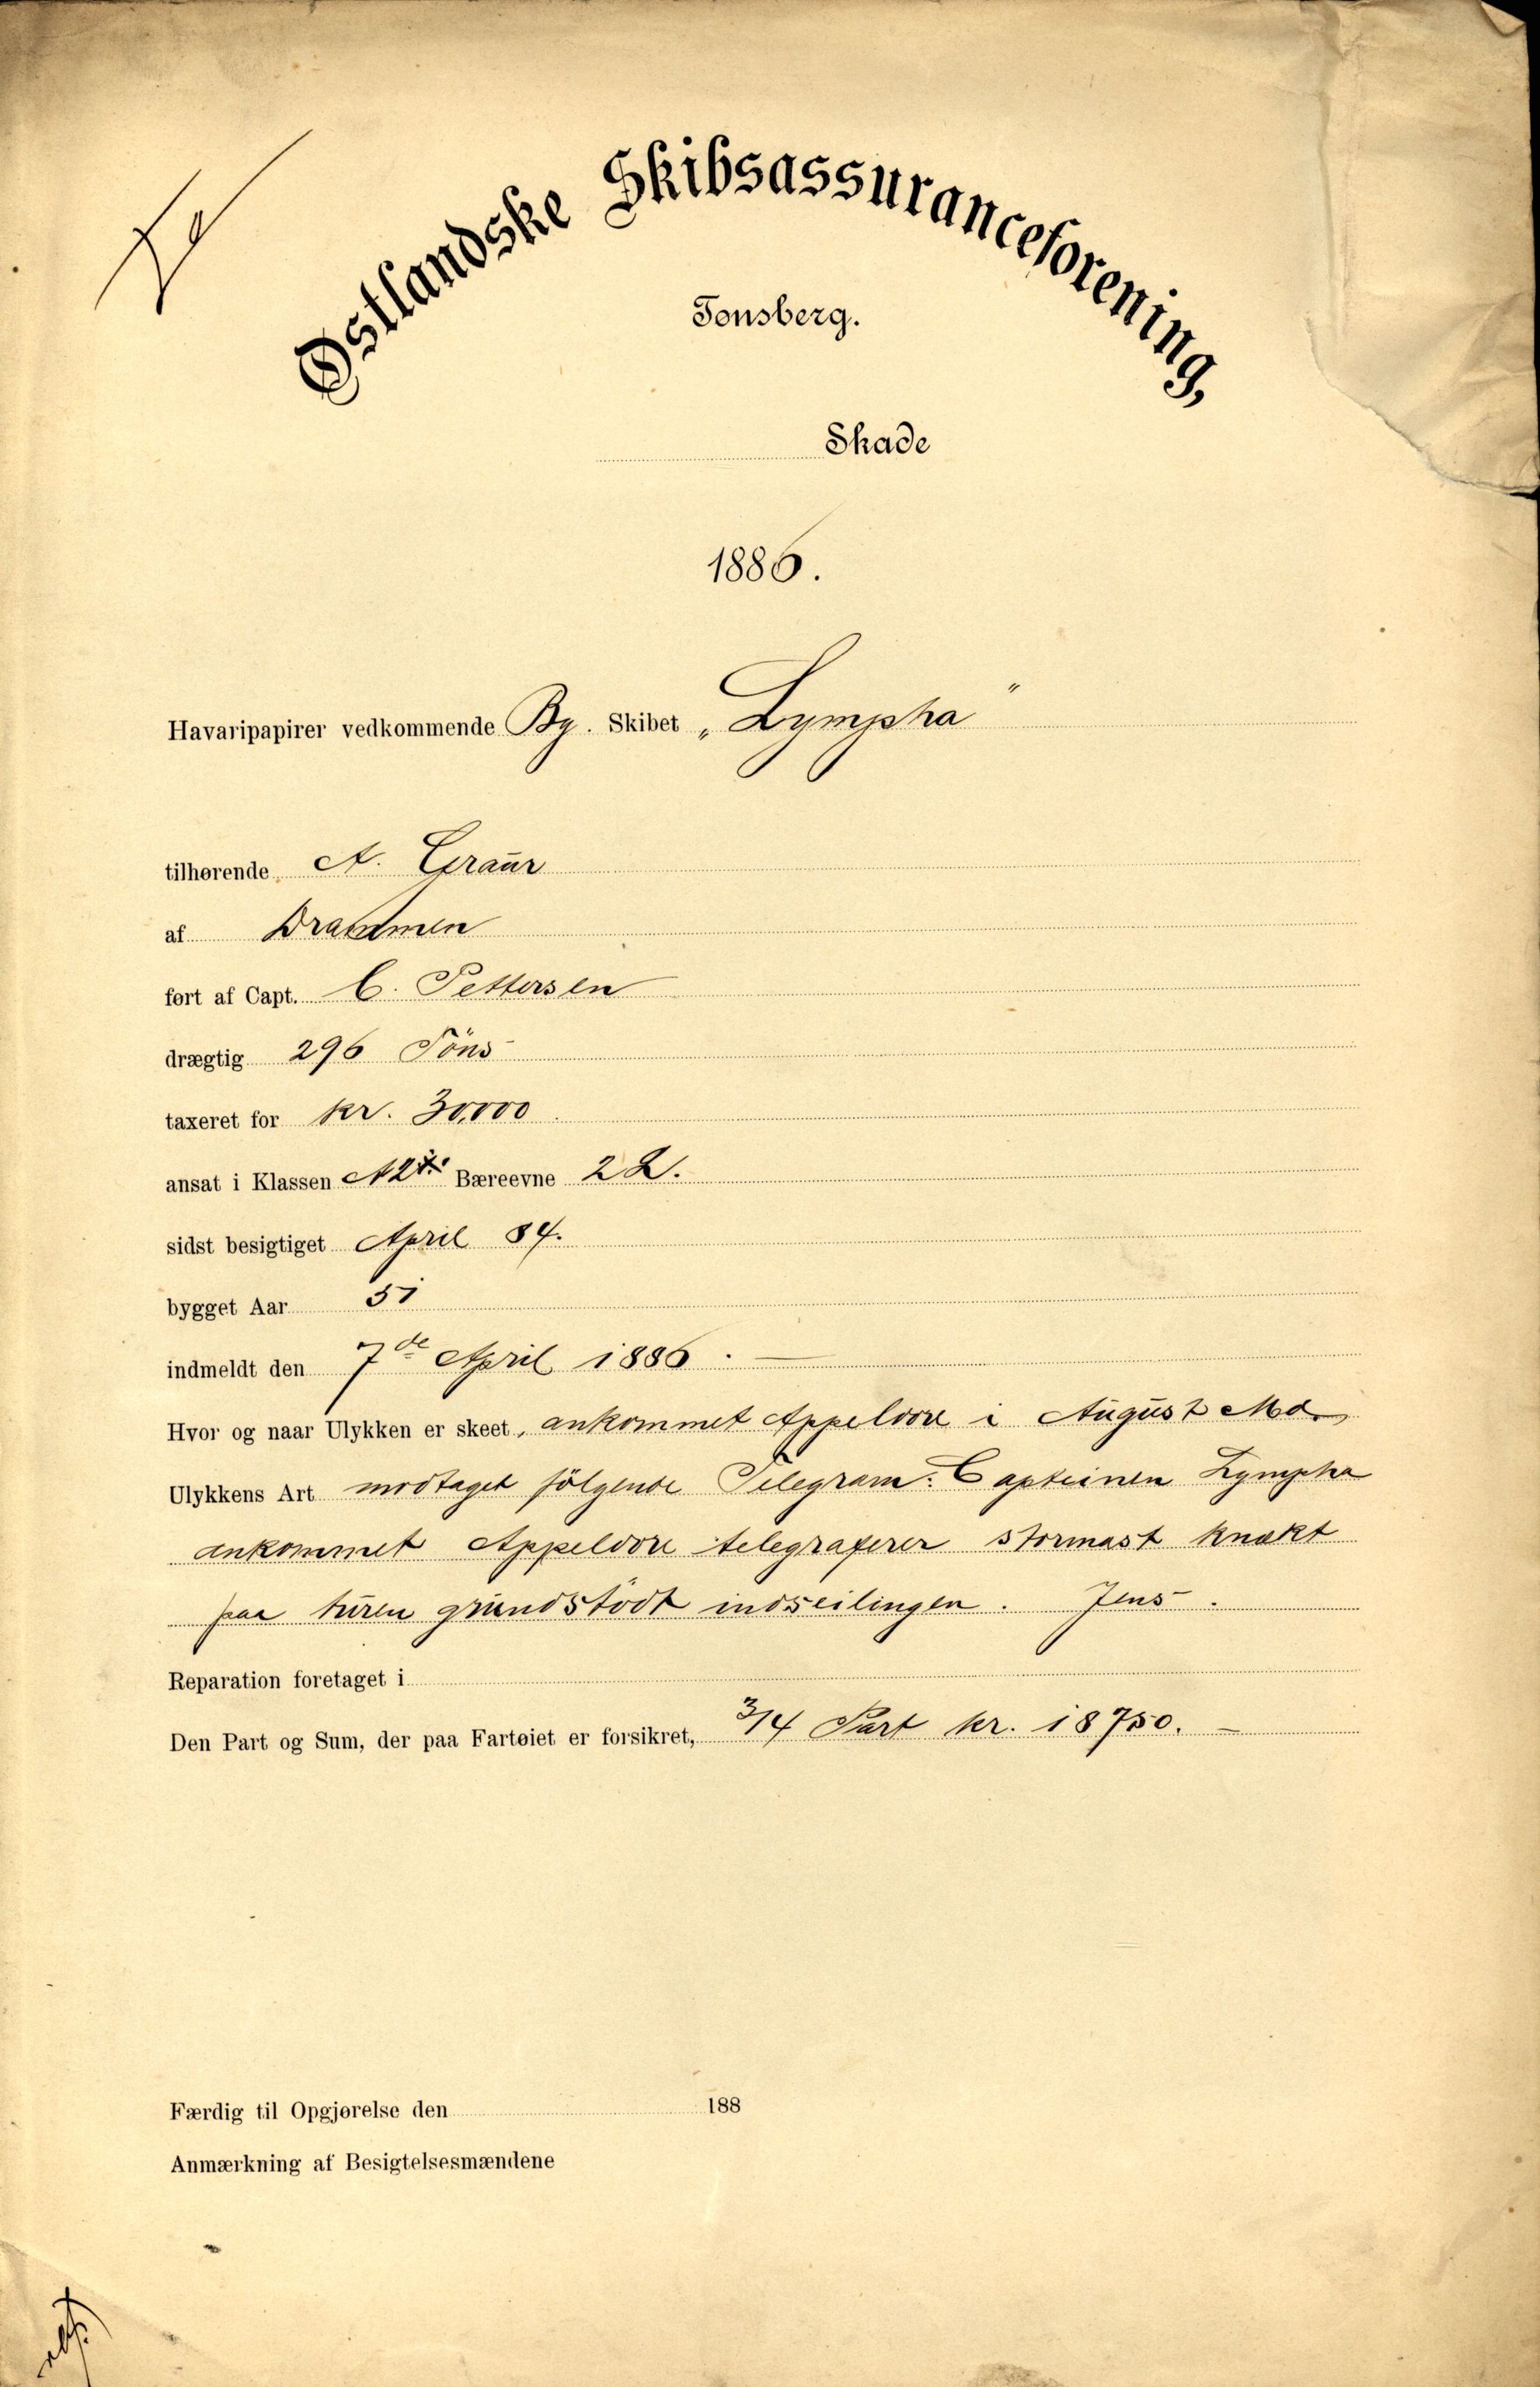 Østlandske Skibsassuranceforening,
Tønsberg.
Skade
1886.
Havaripapirer vedkommende Bg. Skibet „Lympha"
tilhørende A. Graur
af Drammen
ført af Capt. C. Pettersen
drægtig 296 Töns
taxeret for kr. 30,000
ansat i Klassen A2 Bæreevne 2 L.
sidst besigtiget April 84.
bygget Aar 51
indmeldt den 7de April 1886.
Hvor og naar Ulykken er skeet, ankommet Appeldore i August Md.
Ulykkens Art modtaget fölgende Telegram: Capteinen Lympha
ankommet Appeldore telegraferer stormast knækt
paa turen grundstödt indseilingen. Jens.
Reparation foretaget i
Den Part og Sum, der paa Fartøiet er forsikret, 3/4 Part kr. 18750.
Færdig til Opgjørelse den 188
Anmærkning af Besigtelsesmændene